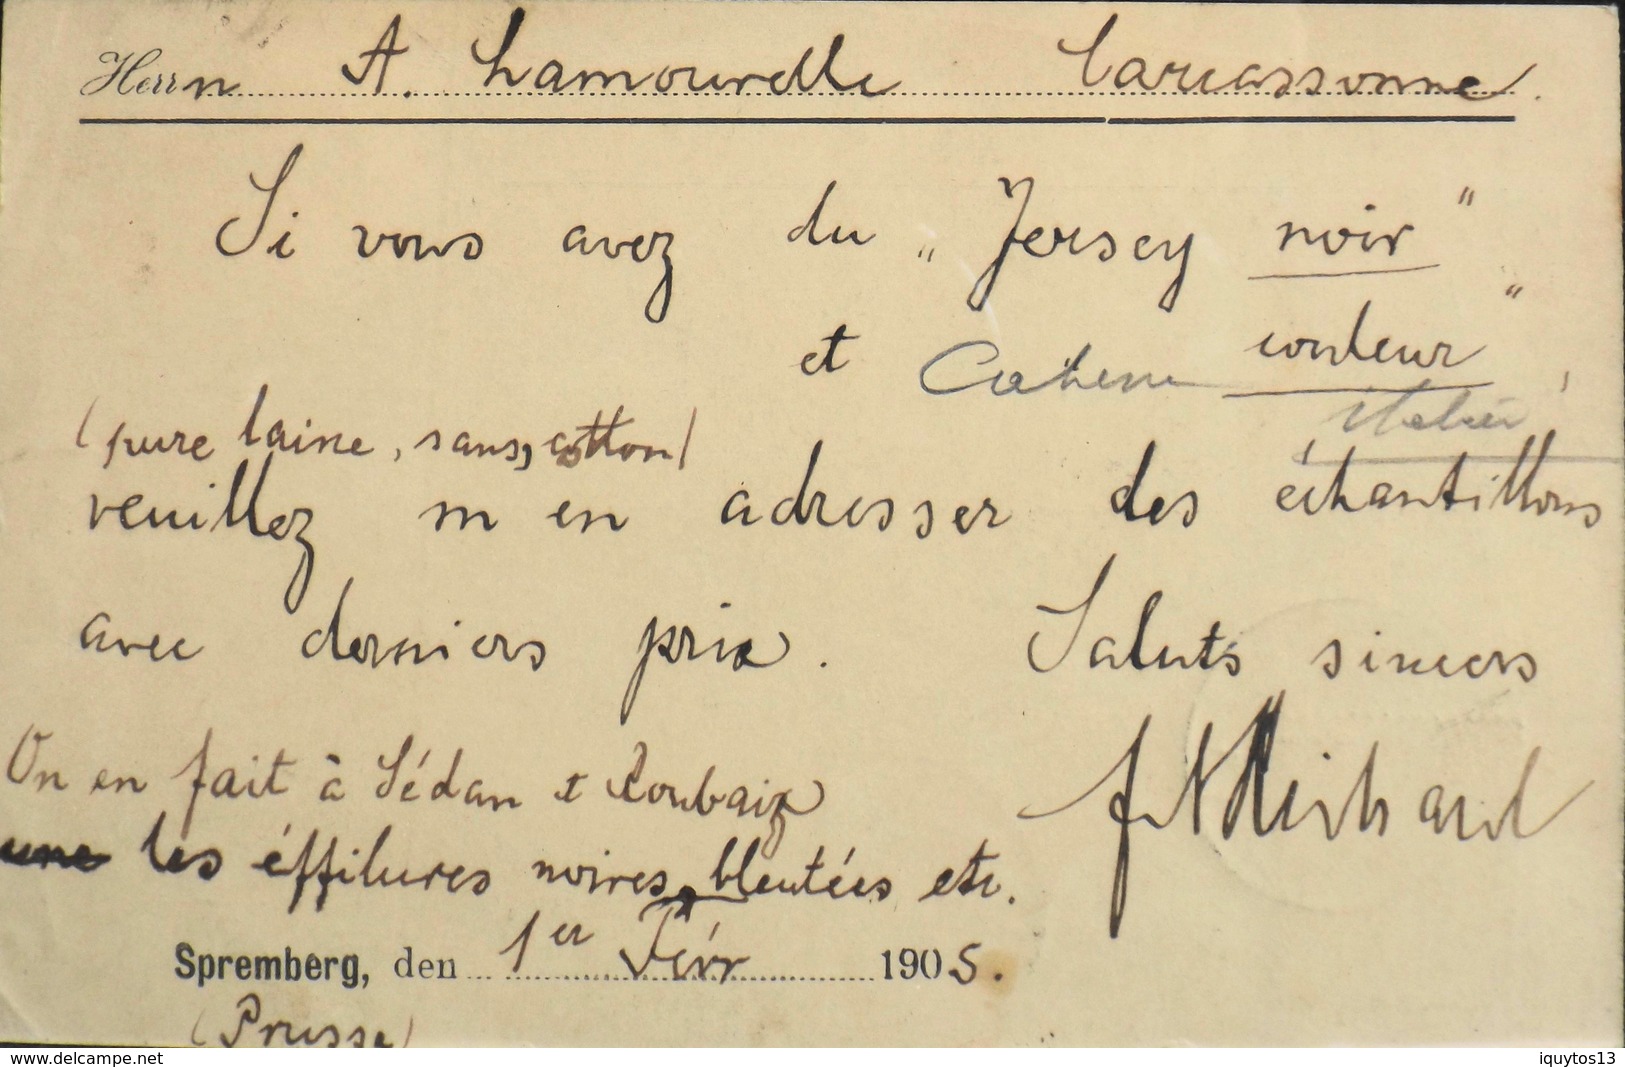 Herrn A. Lamourelle Carcassonne.
Si vous avez du „Jersey noir"
et couleur"
(pure laine, sans, cotton)
veuillez m en adresser des échantillons
avec derniers prix. Saluts sincers
On en fait à Sédan & Roubaix
une les éffilures noires, bleutées etc.
Spremberg, den 1er Févr 1905.
(Prusse)
www.delcampe.net iquytos13